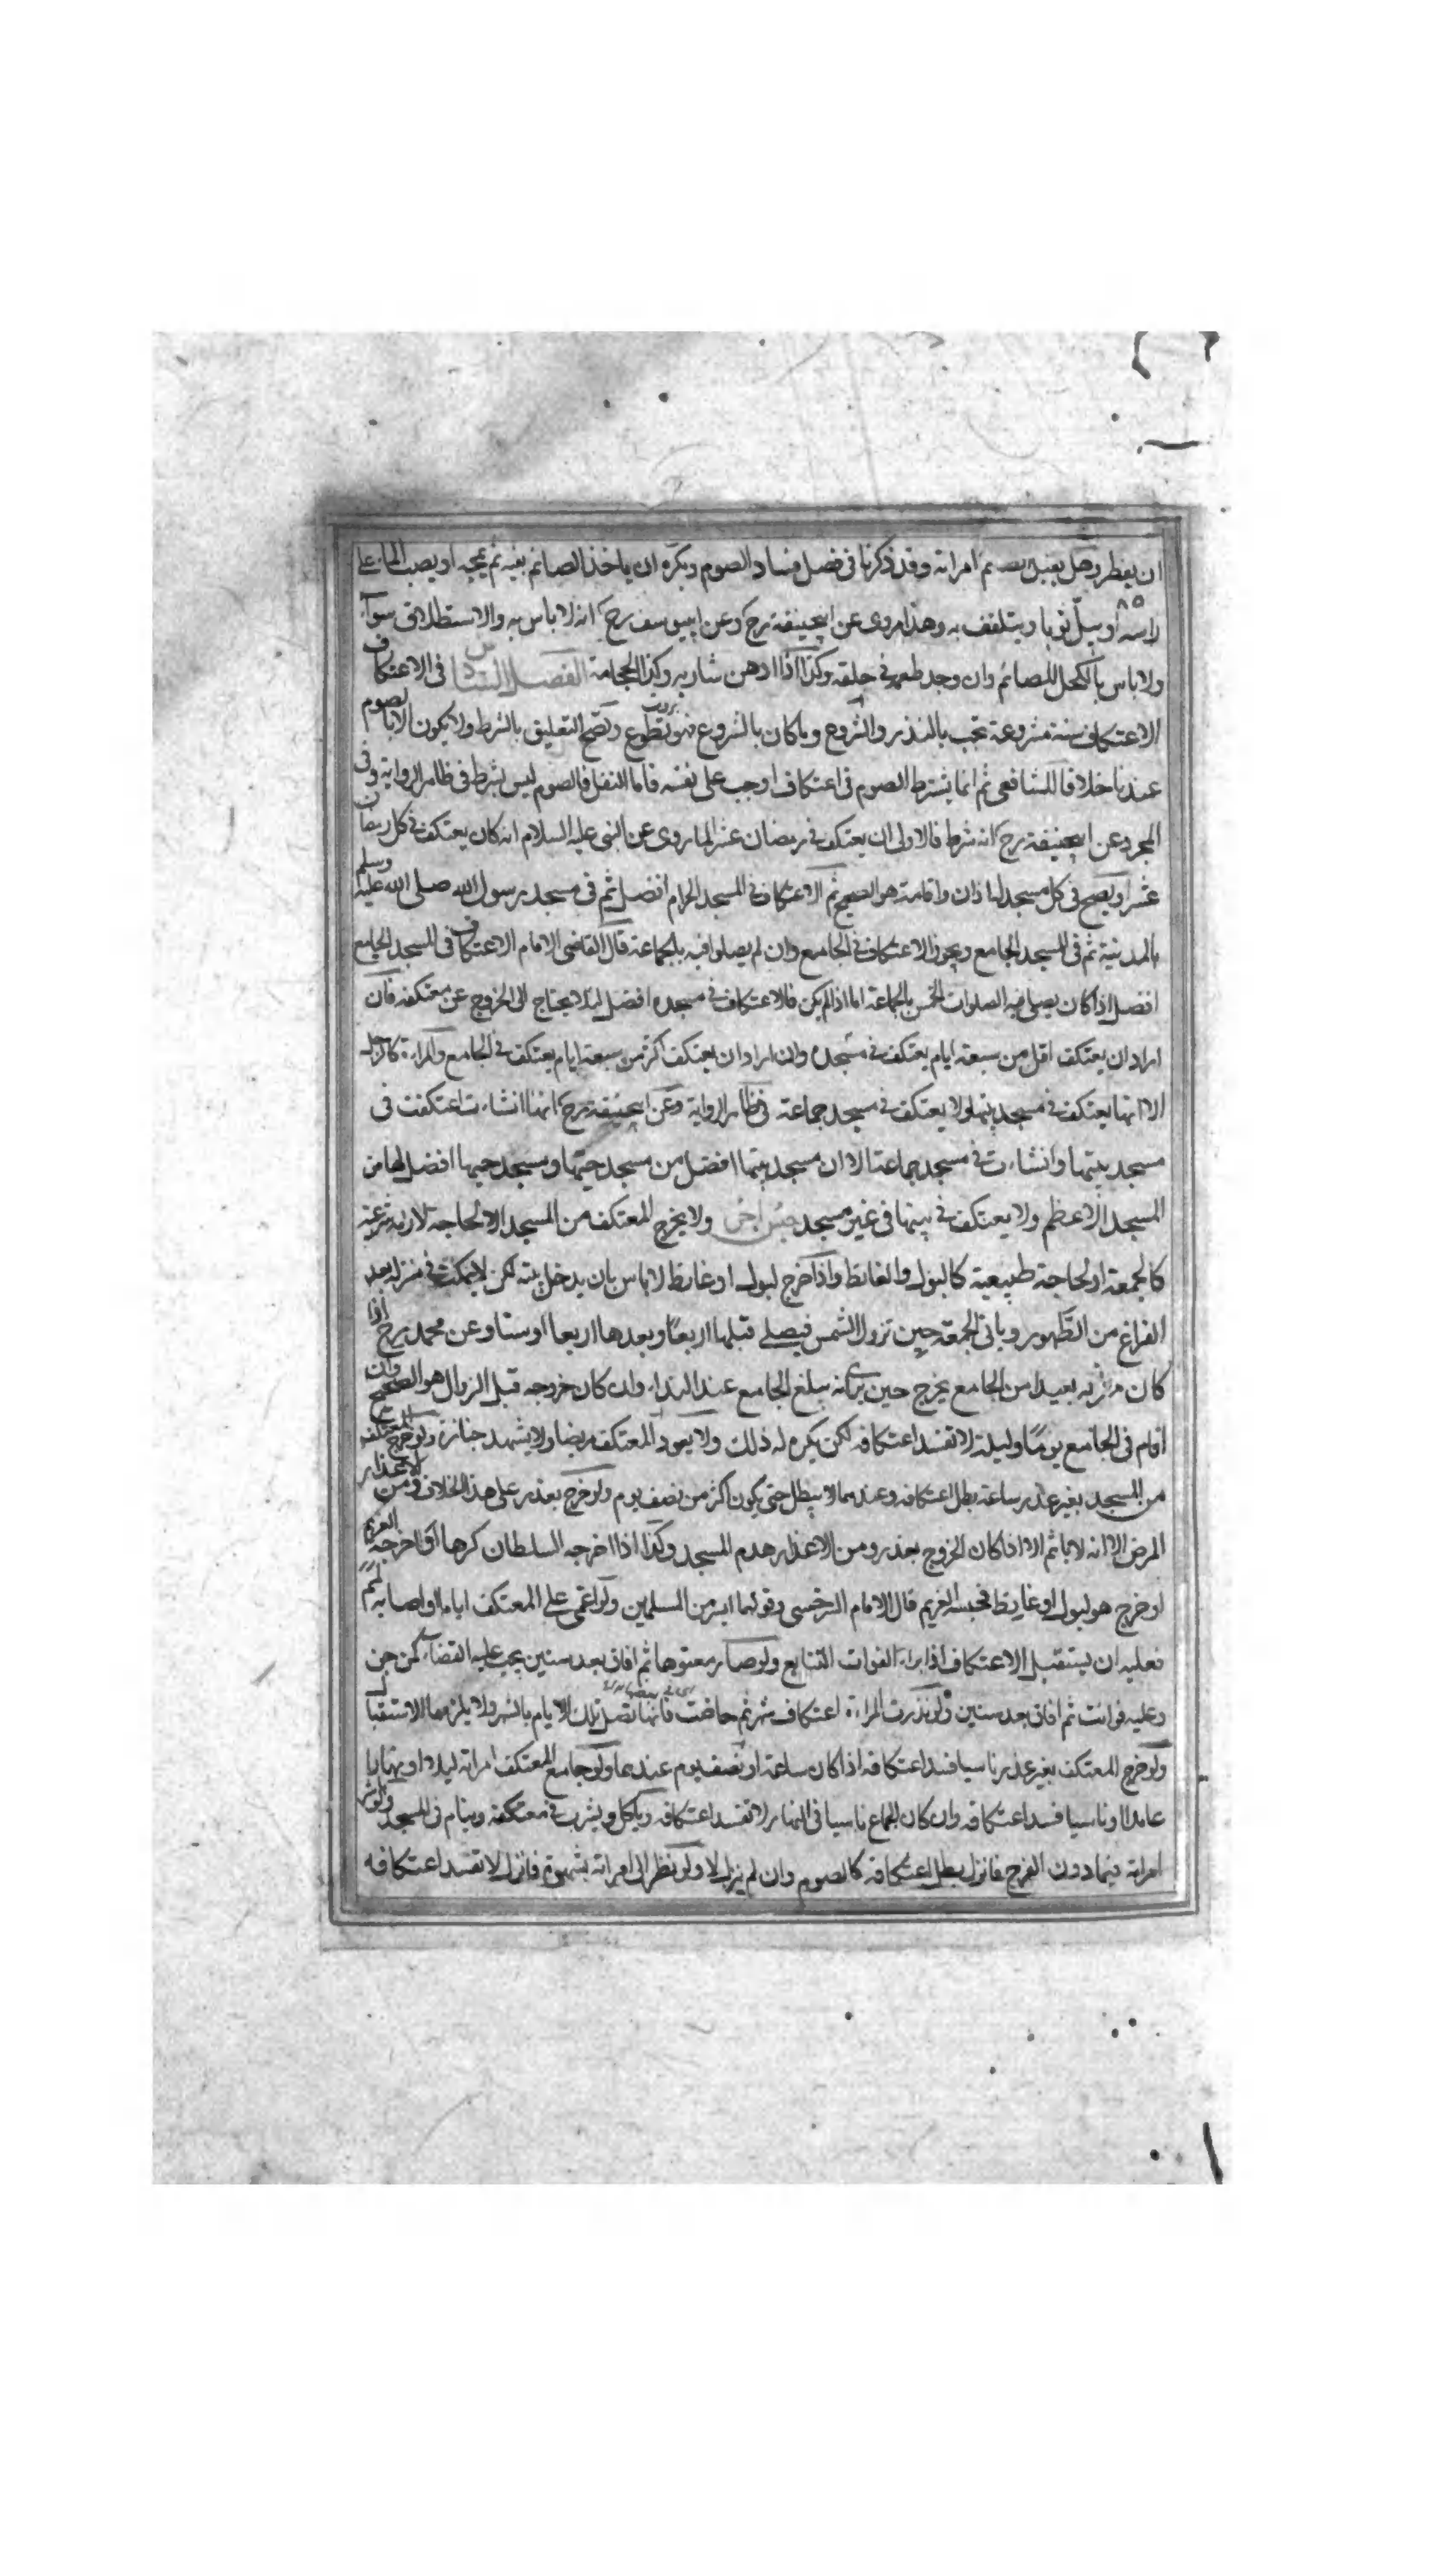 ان يفطر رجل يقبل امراته وقد ذكرنا في فصل فساد الصوم ويكره ان ياخذ الصائم بفيه ثم يمجه او يصب الماء على
٨٥
راسه او يبل ثوبا ويتلفف به وهذا مروى عن ابيحنيفة رح وعن ابييوسف رح انه لا باس به والاستطلاق سواء
ولا باس بالكحل للصائم وان وجد طعمه في حلقه وكذا اذا ادهن شاربه وكذا الحجامة الفصل السادس في الاعتكاف
الاعتكاف سنة مشروعة تجب بالنذر والشروع وما كان بالشروع فهو تطوع ويصح التعليق بالشرط ولا يكون الا بالصوم
عندنا خلافا للشافعي ثم انما يشترط الصوم في اعتكاف اوجب على نفسه فاما النفل فالصوم ليس بشرط في ظاهر الرواية وفى
المجرد عن ابيحنيفة رح انه شرط فالاولى ان يعتكف في رمضان عشرا لما روى عن النبى عليه السلام انه كان يعتكف في كل رمضان
عشرا ويصح في كل مسجد له اذان واقامة هو الصحيح ثم الاعتكاف في المسجد الحرام افضل ثم في مسجد رسول الله صلى الله عليه وسلم
بالمدينة ثم في المسجد الجامع ويجوز الاعتكاف في الجامع وان لم يصلوا فيه بالجماعة قال القاضى الامام الاعتكاف في المسجد الجامع
افضل اذا كان يصلى فيه الصلوات الخمس بالجماعة اما اذا لم يكن فالاعتكاف في مسجده افضل لئلا يحتاج الى الخروج عن معتكفه فان
اراد ان يعتكف اقل من سبعة ايام يعتكف في مسجده وان اراد ان يعتكف اكثر من سبعة ايام يعتكف في الجامع والمراءة كالرجل
الا انها يعتكف في مسجد بيتها ولا يعتكف في مسجد جماعة في ظاهر الرواية وعن ابيحنيفة رح انها انشاءت اعتكفت في
مسجد بيتها وانشاءت في مسجد جماعة الا ان مسجد بيتها افضل من مسجد حيها ومسجد حيها افضل لها من
المسجد الاعظم ولا يعتكف في بيتها في غير مسجد ولا يخرج المعتكف من المسجد الا لحاجة شرعية
كالجمعة او لحاجة طبيعية كالبول والغائط واذا خرج لبول او غائط لا باس بان يدخل بيته لكن لا يمكث في منزله بعد
الفراغ من الطهور وياتى الجمعة حين تزول الشمس فيصلى قبلها اربعا وبعدها اربعا او ستا وعن محمد رح اذا
كان منزله بعيدا من الجامع يخرج حين يرى انه يبلغ الجامع عند النداء وان كان خروجه قبل الزوال هو الصحيح وان
اقام في الجامع يوما وليلة لا تفسد اعتكافه لكن يكره له ذلك ولا يعود المعتكف مريضا ولا يشهد جنازة ولو خرج المعتكف
من المسجد بغير عذر ساعة بطل اعتكافه وعندهما لا يبطل حتى يكون اكثر من نصف يوم ولو خرج بعذر على هذا الخلاف ومن الاعذار
المرض الا انه لا ياثم الا اذا كان الخروج بعذر ومن الاعذار هدم المسجد وكذا اذا اخرجه السلطان كرها او اخرجه الغريم
او خرج هو لبول او غايط فحبسه الغريم قال الامام السرخسى وقولهما ايسر من المسلمين ولو اغمى على المعتكف اياما او اصابه لمم
فعليه ان يستقبل الاعتكاف اذا براء لفوات التتابع ولو صار معتوها ثم افاق بعد سنين يجب عليه القضاء كمن جن
وعليه فوائت ثم افاق بعد سنين ولو نذرت المراءة اعتكاف شهر ثم حاضت فانها تصل تلك الايام بالشهر ولا يلزمها الاستقبال
ولو خرج المعتكف بغير عذر ناسيا فسد اعتكافه اذا كان ساعة او نصف يوم عندهما ولو جامع المعتكف امراته ليلا او نهارا
عامدا او ناسيا فسد اعتكافه وان كان الجماع ناسيا في النهار لا تفسد اعتكافه وياكل ويشرب في معتكفه وينام في المسجد ولو باشر
امراته فيما دون الفرج فانزل بطل اعتكافه كالصوم وان لم ينزل لا ولو نظر الى امراته بشهوة فانزل لا تفسد اعتكافه